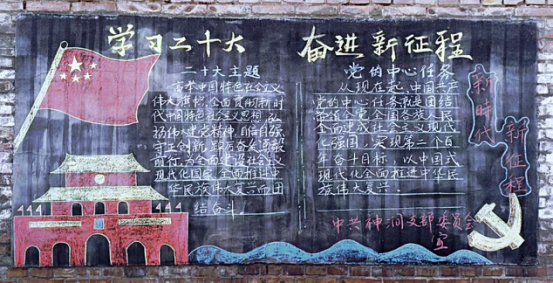 学习二十大 奋进新征程
二十大主题
高举中国特色社会主义
伟大旗帜,全面贯彻新时
代中国特色社会主义思想,弘
扬伟大建党精神,自信自强、
守正创新,踔厉奋发、勇毅
前行,为全面建设社会主义
现代化国家、全面推进中
华民族伟大复兴而团
结奋斗。
党的中心任务
从现在起,中国共产
党的中心任务就是团结
带领全党全国各族人民
全面建成社会主义现代
化强国,实现第二个百
年奋斗目标,以中国式
现代化全面推进中华民
族伟大复兴。
新时代
新征程
中共神涧支部委员会
宣